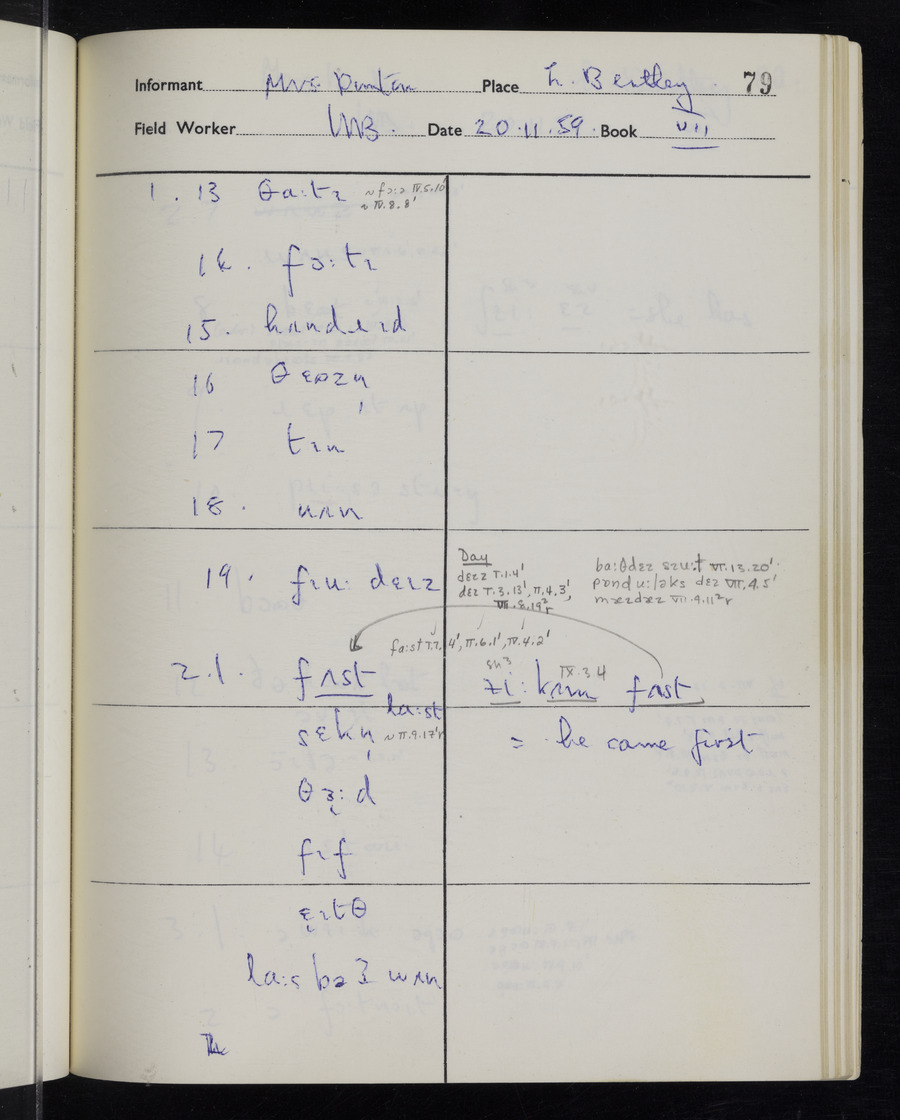 Informant Mrs. Place L. Bentley 79
Field Worker Date 20.11.59. Book VII
1.13 θa:tɪ ~fɔ:ɔ IV.5.10 ~IV.8.8'
14. fɔ:tɪ
15 hʌndəɪd
16 θɛɒzn̩
17 tɪn
18. wʌn
19. fɪu: deɪz
Day
deɪz I.1.4'
deɪ I.3.13', II.4.3',
VII.8.19²r
ba:θdeɪ sɪu:t VI.13.20'
pɒnd u:ləks deɪ VII.4.5'
VII.9.11²r
fa:st I.2.4', II.6.1', IV.4.2'
2.1. fʌst
zi: kʌm IX.3.4 fʌst
la:st
sɛkn̩ ~II.9.17'r
= he came first
θɜ:d
fɪf
ɛɪtθ
la:s wʌn